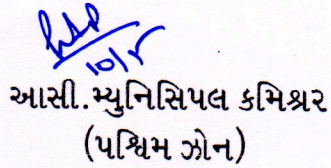 10/5
આસી.મ્યુનિસિપલ કમિશ્નર
(પશ્ચિમ ઝોન)